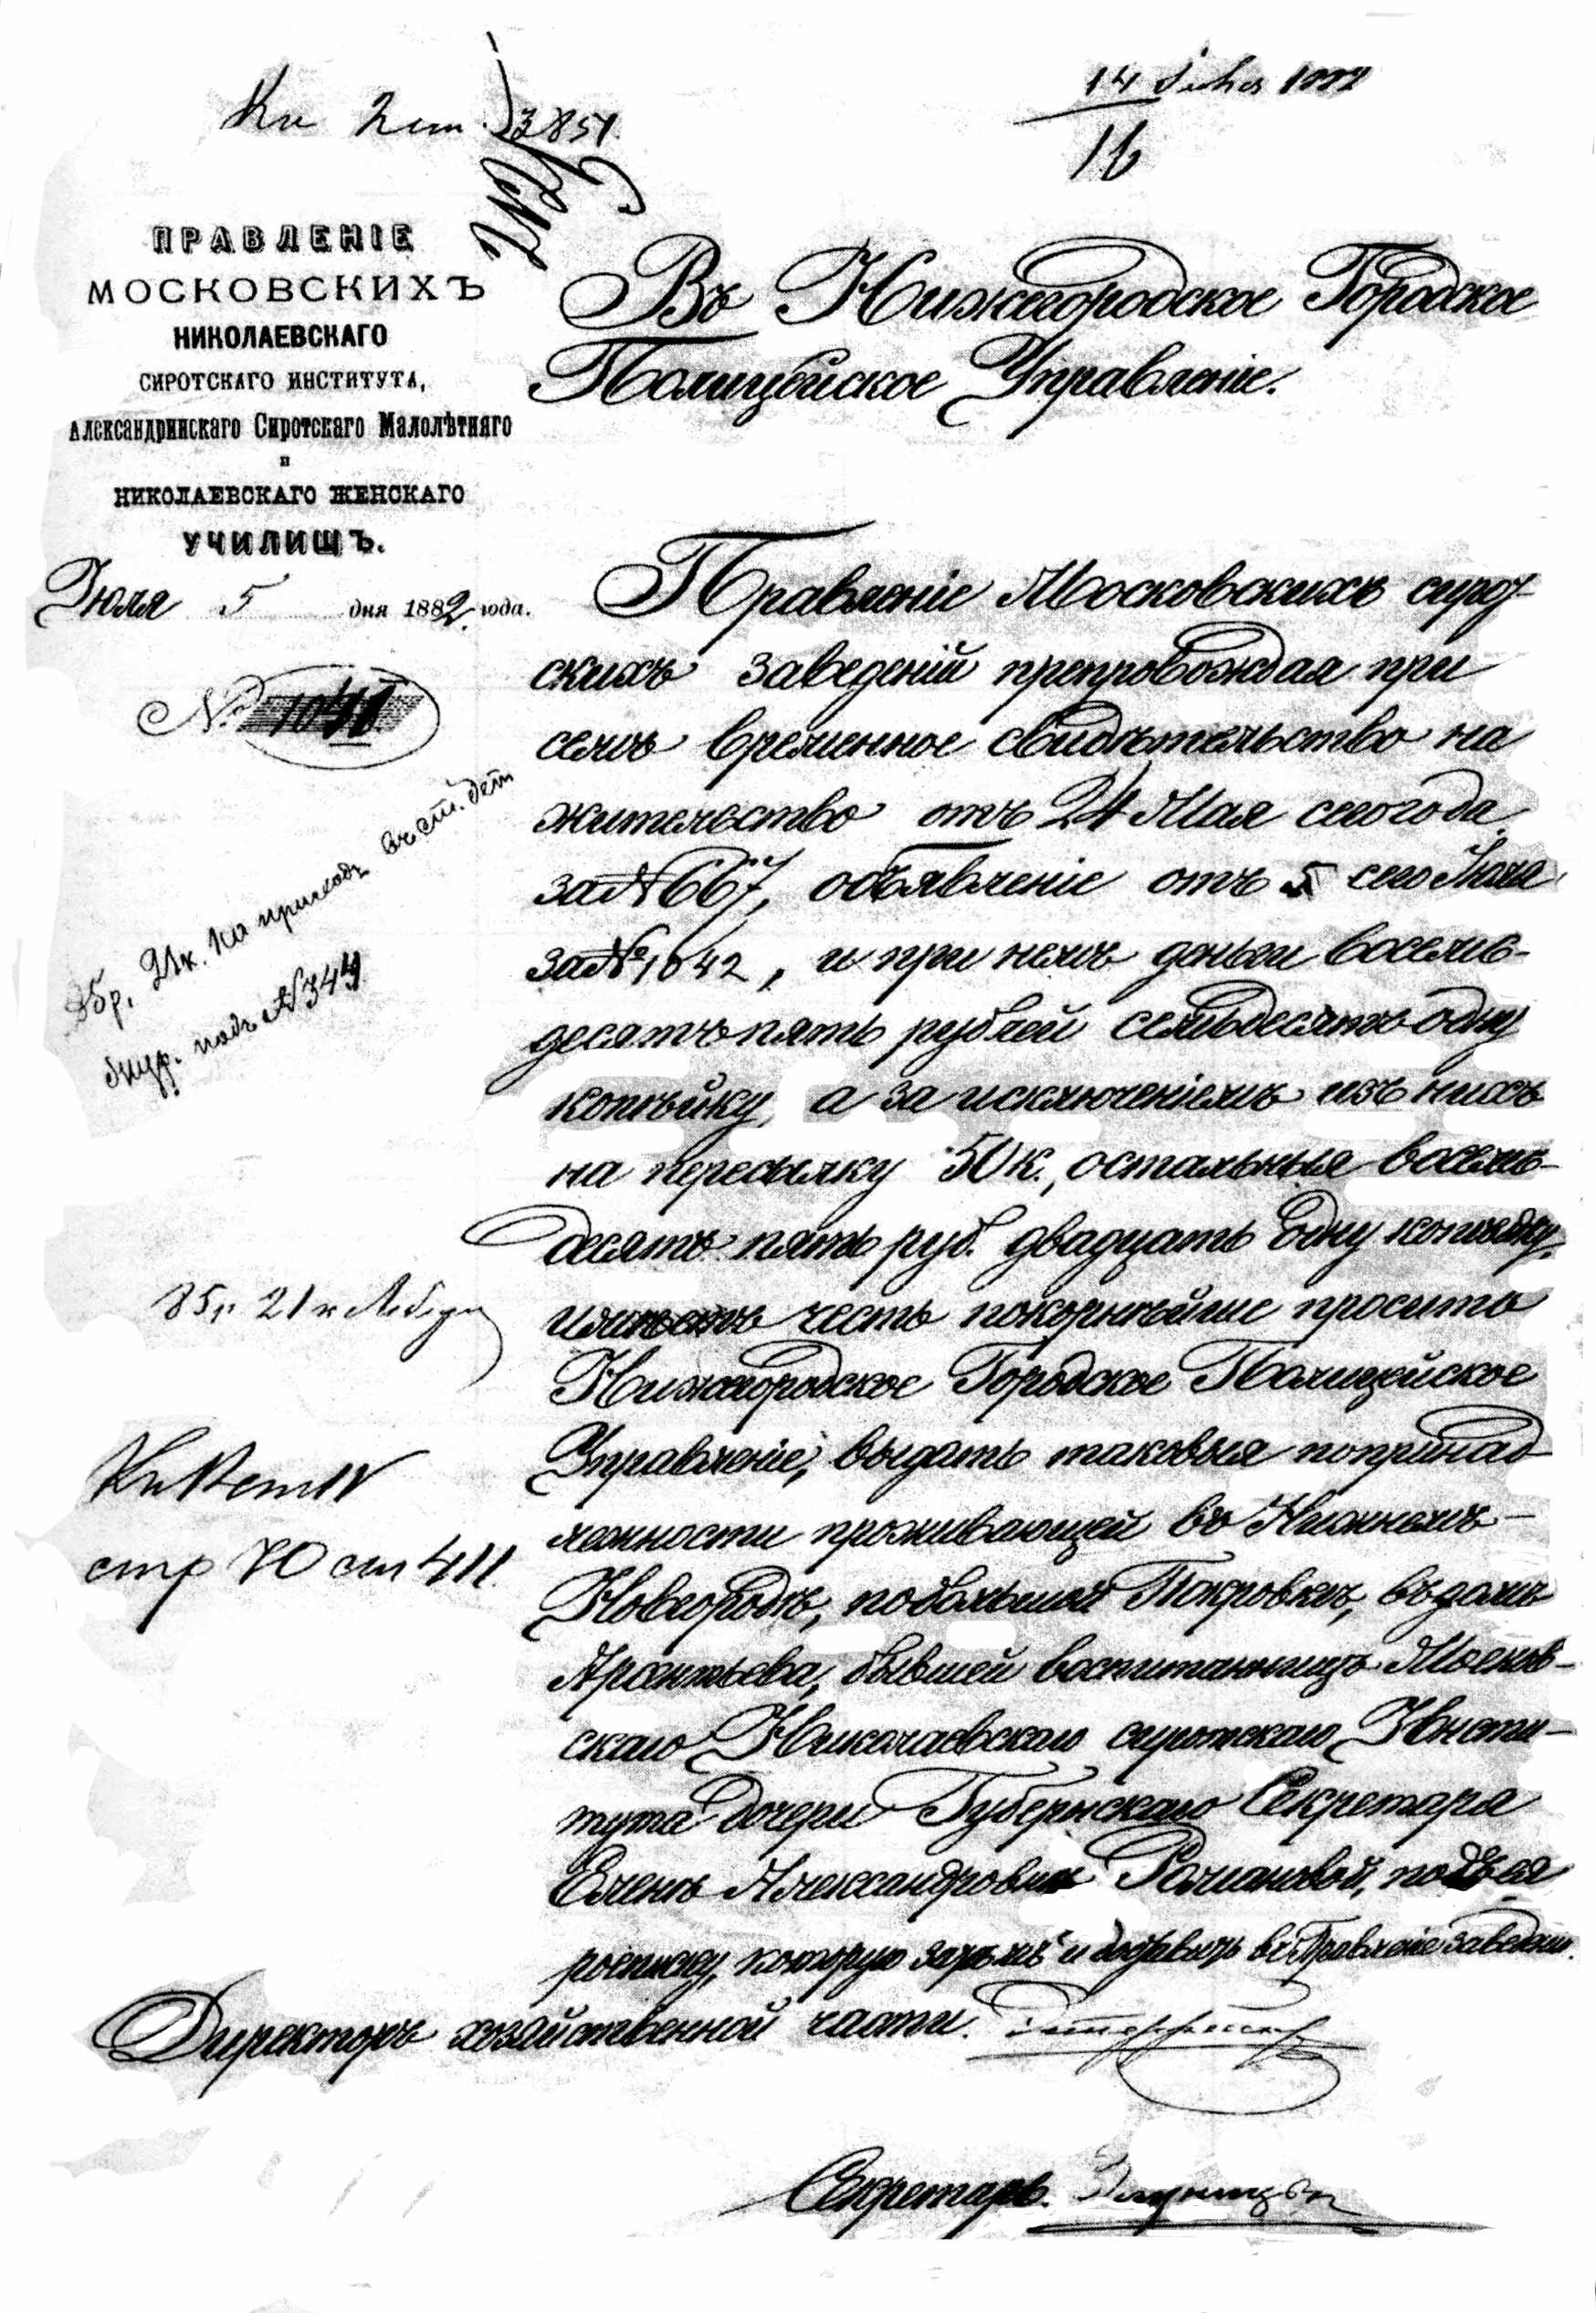 14 1882
16
Кн 2 ст. 3851
ПРАВЛЕНІЕ
МОСКОВСКИХЪ
НИКОЛАЕВСКАГО
СИРОТСКАГО ИНСТИТУТА,
Александринскаго Сиротскаго Малолѣтняго
и
НИКОЛАЕВСКАГО ЖЕНСКАГО
УЧИЛИЩЪ.
Іюля 5 дня 1882 года.
№
85р. 21к. на приходъ въ ст. деп.
журн. подъ №344
85р. 21к
стр 70 ст 411.
Въ Нижегородское Городское
Полицейское Управленіе.
Правленіе Московскихъ сирот-
скихъ заведеній препровождая при
семъ временное свидѣтельство на
жительство отъ 24 Мая сего года
за №667, объявленіе отъ 5 сего Іюля
за №1042, и при немъ деньги восемь-
десятъ пять рублей семьдесятъ одну
копѣйку, а за исключеніемъ изъ нихъ
на пересылку 50 к., остальныя восемь-
десятъ пять руб. двадцать одну копѣйку,
имѣетъ честь покорнѣйше просить
Нижегородское Городское Полицейское
Управленіе, выдать таковыя по принад-
лежности проживающей въ Нижнемъ-
Новгородѣ, по большой Покровкѣ, въ домѣ
Арсентьева, бывшей воспитанницѣ Москов-
скаго Николаевскаго сиротскаго Инсти-
тута дочери Губернскаго Секретаря
Еленѣ Александровнѣ Романовой, подъ ея
росписку, которую за тѣмъ и въ Правленіе заведеній.
Директоръ хозяйственной части.
Секретарь.